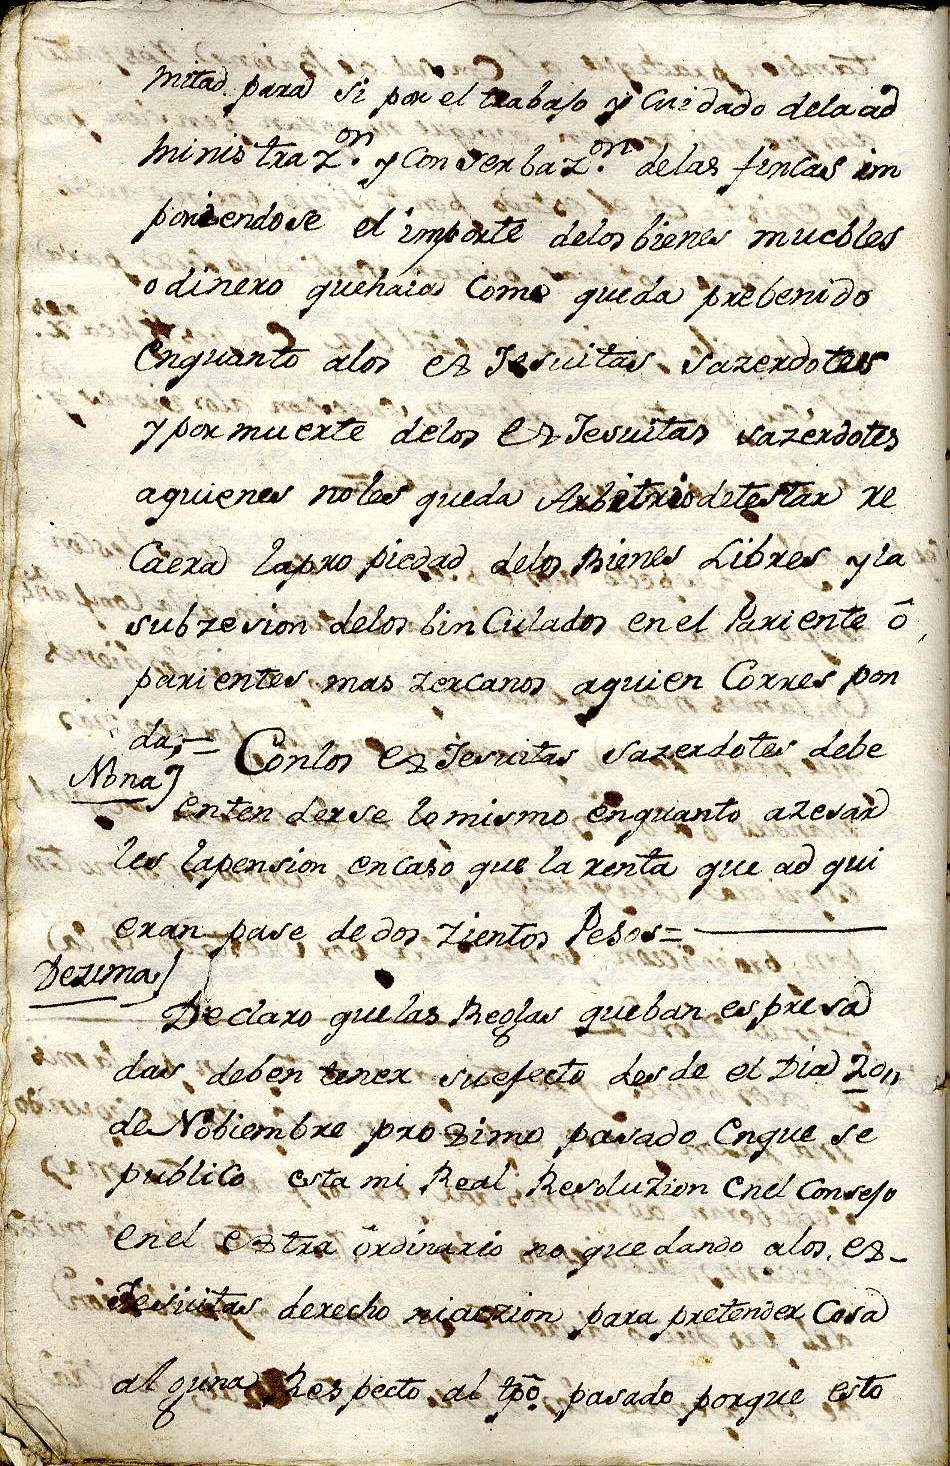 mitad para si por el trabajo y Cuidado dela ad
ministraz.on y Conserbaz.on delas fincas im
poniendose el importe delos bienes muebles
o dinero quehaia Como queda prebenido
enquanto alos ex Jesuitas sazerdotes
y por muerte delos ex Jesuitas sazerdotes
aquienes noles queda Arbitrio detestar re
Caera lapropiedad delos Bienes Libres y la
subzesion delos binCulados en el Pariente ô
parientes mas zercanos aquien Corres pon
da;= Conlos ex Jesuitas sazerdotes debe
Nona)
entenderse lo mismo enquanto azesar
les lapension encaso que la renta que ad qui
eran pase de dos zientos Pesos=
Dezima)
Declaro quelas Reglas queban espresa
das deben tener suefecto desde el Dia 20,,
de Nobiembre proximo pasado Enque se
publico esta mi Real Resoluzion Enel Consejo
Enel extra ôrdinario no quedando alos ex-
Jesuitas derecho niaczion para pretender Cosa
alguna Respecto al tpõ. pasado porque esto